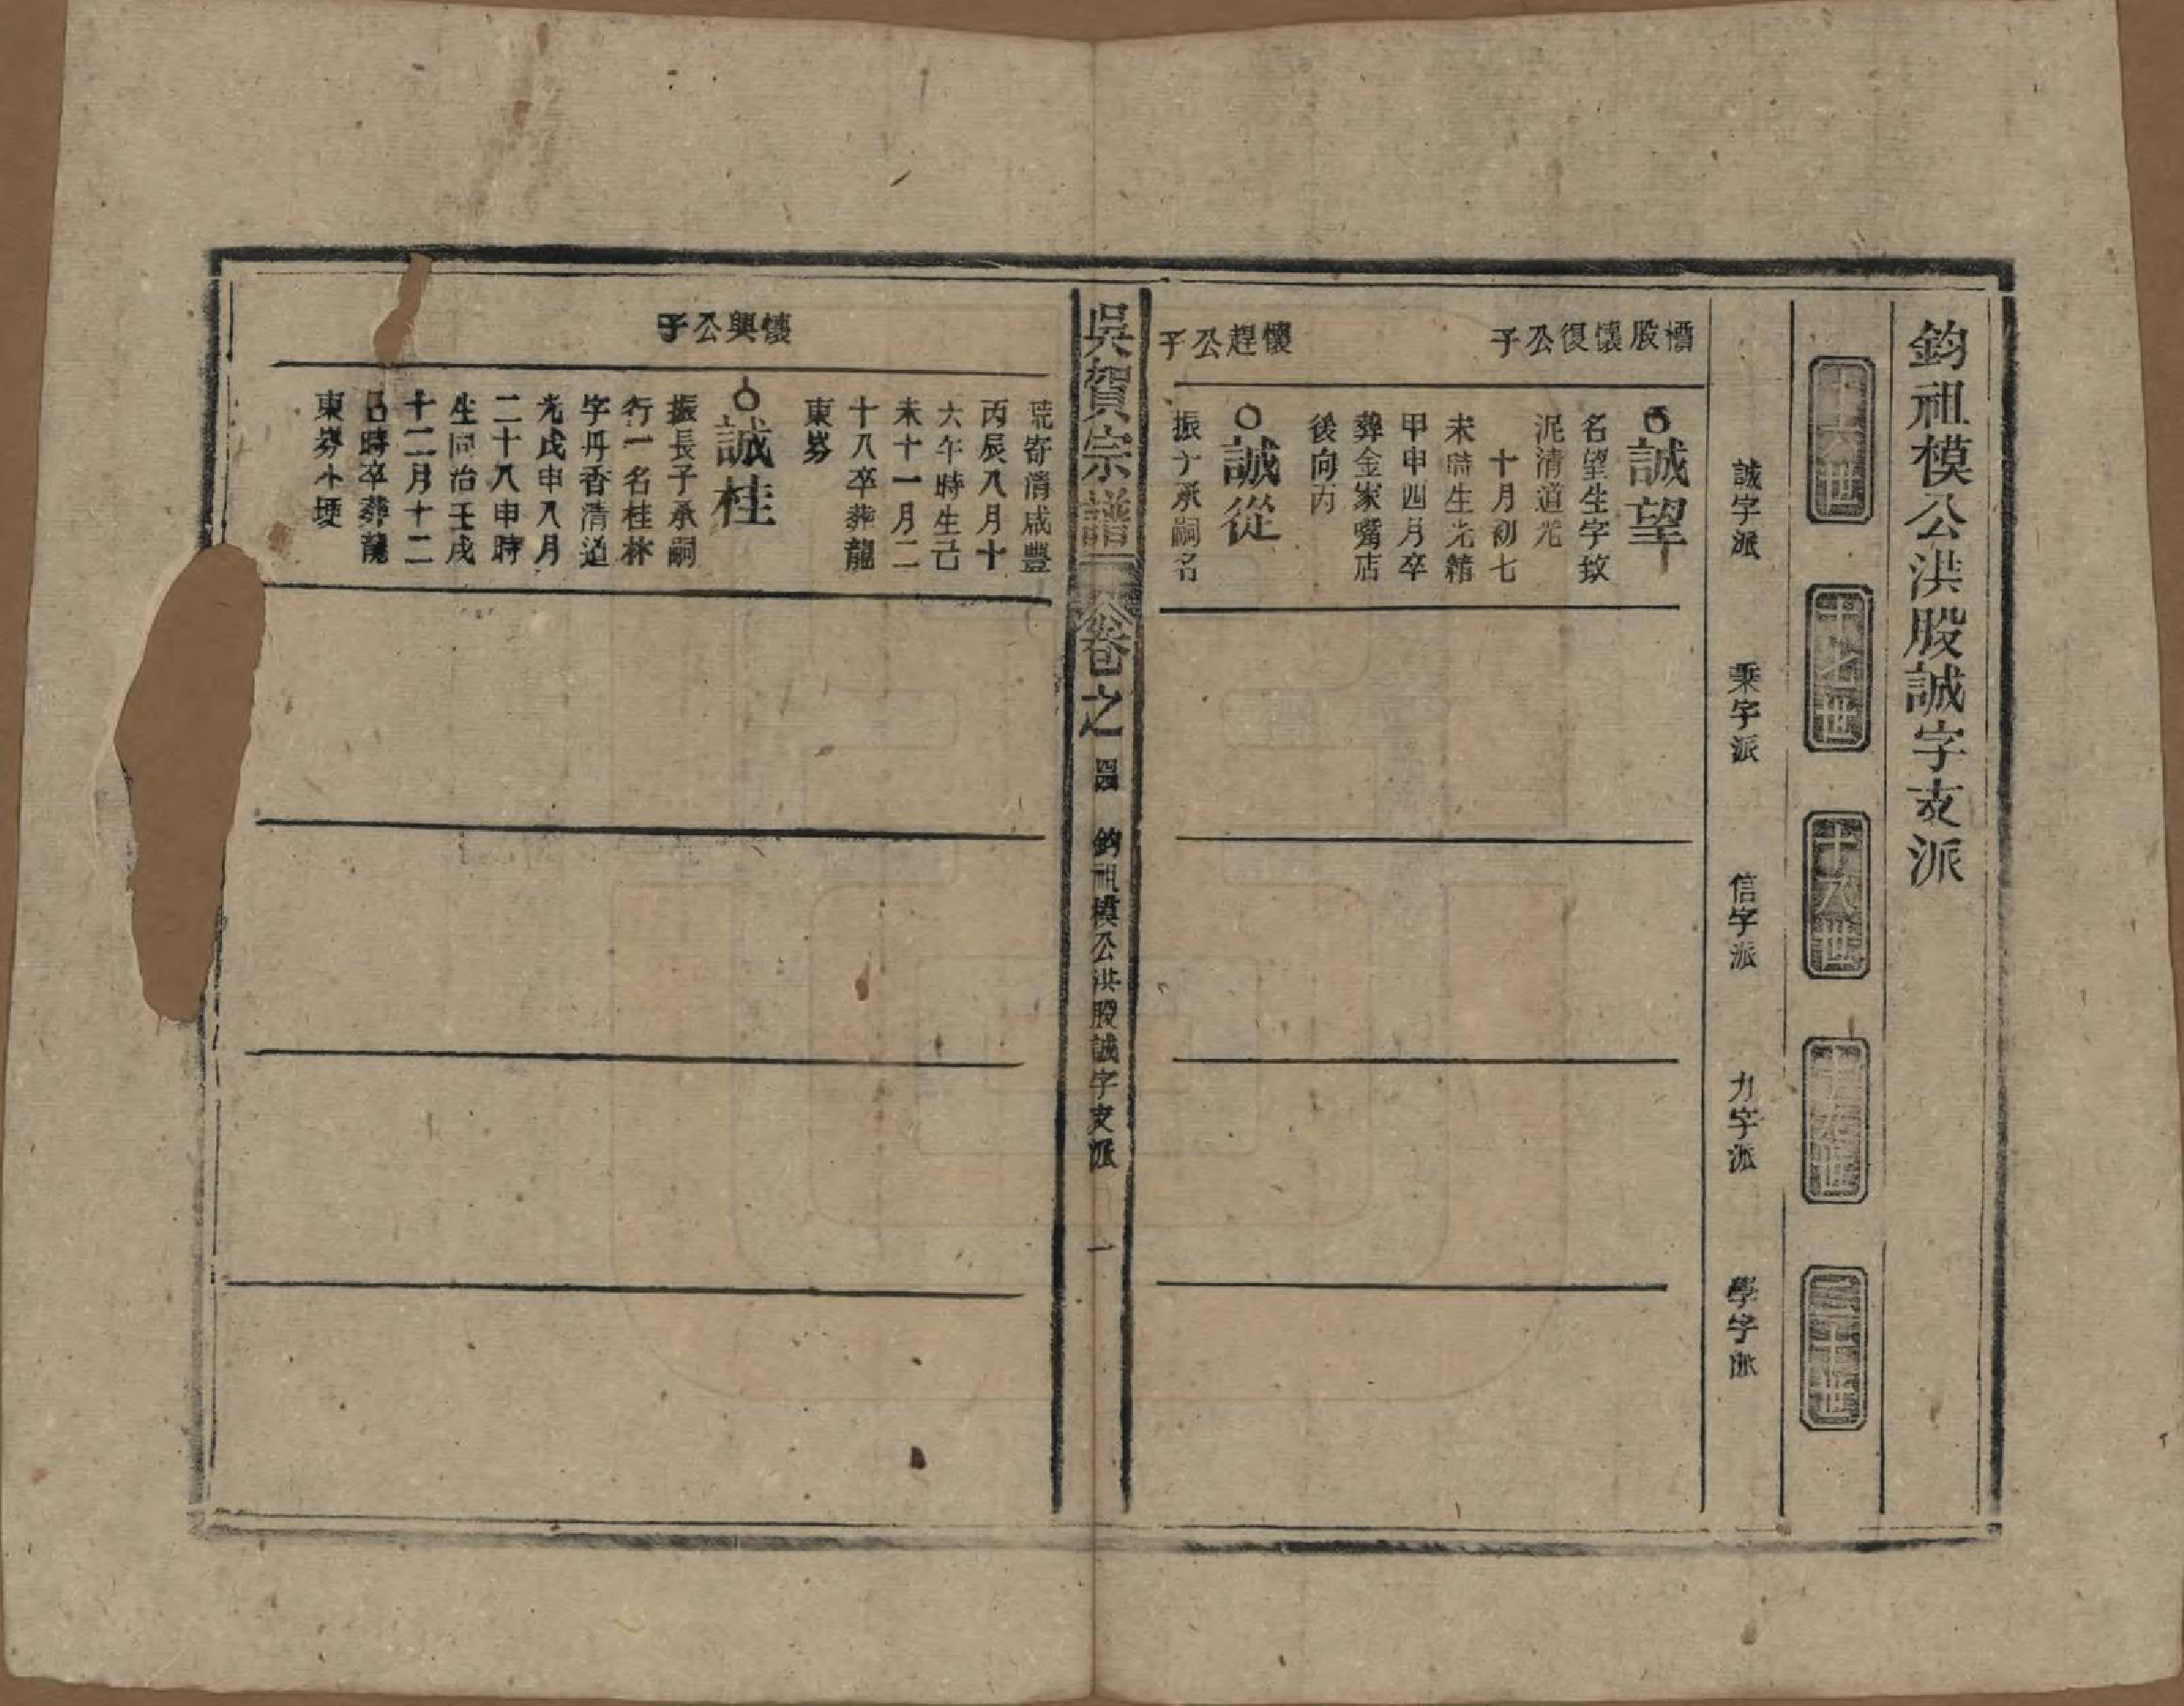 鈞祖模公洪股誠字支派
十六世
十七世
十八世
十九世
二十世
誠字派
秉字派
信字派
力字派
學字派
股懷復公子
誠望
名望生字致
泥清道光
十月初七
未時生光緒
甲申四月卒
葬金家嘴店
後向丙
懷趕公子
誠從
振子承嗣名
吳賀宗譜
卷之四
鈞祖模公洪股誠字支派
一
荒寄清咸豐
丙辰八月十
六午時生己
未十一月二
十八卒葬龍
東塝
懷興公子
誠桂
振長子承嗣
行一名桂林
字丹香清道
光戊申八月
二十八申時
生同治壬戌
十二月十二
巳時卒葬龍
東塝小埂